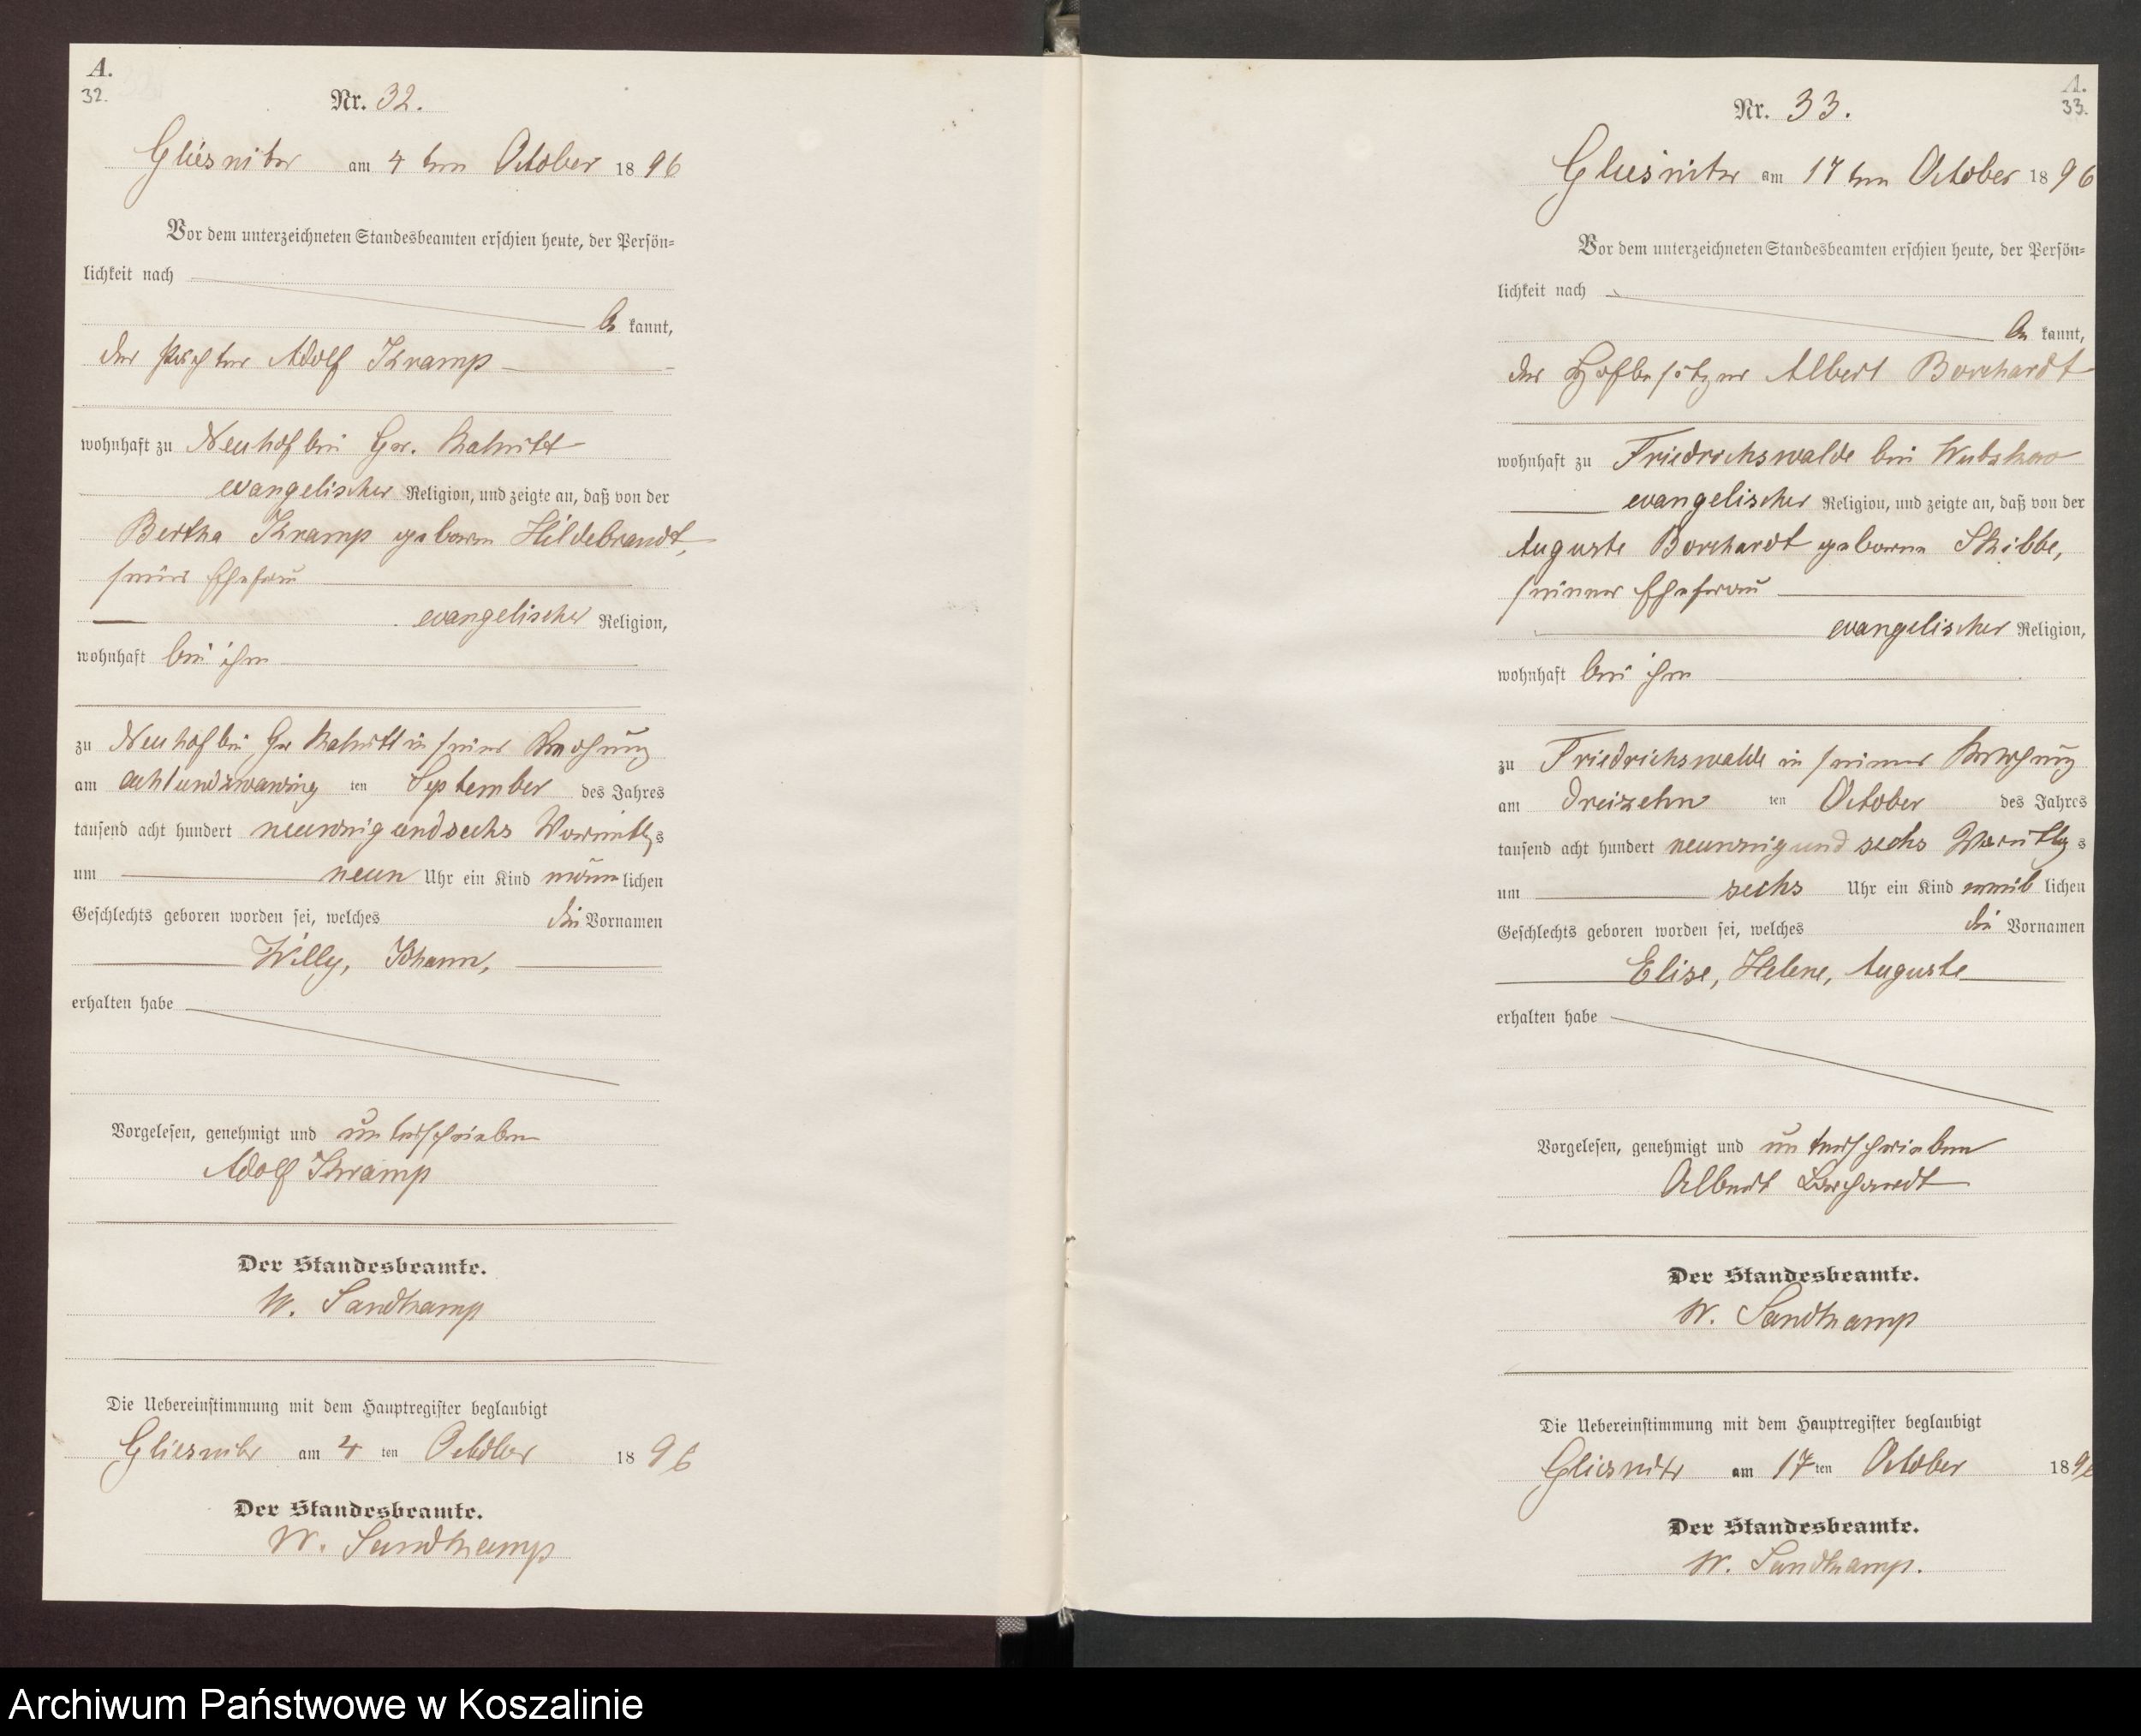 A.
32.
Nr. 32.
Gliesnitz am 4 ten October 1896
Vor dem unterzeichneten Standesbeamten erschien heute, der Persön=
lichkeit nach
be kannt,
der Pächter Adolf Kramp
wohnhaft zu Neuhof bei Gr.
evangelischer Religion, und zeigte an, daß von der
Bertha Kramp geborene Hildebrandt,
seiner Ehefrau
evangelischer Religion,
wohnhaft bei ihm
zu Neuhof bei Gr in seiner Wohnung
am achtundzwanzig ten September des Jahres
tausend acht hundert neunzig und sechs Vormittags
um neun Uhr ein Kind männlichen
Geschlechts geboren worden sei, welches die Vornamen
Willy, Johann,
erhalten habe
Vorgelesen, genehmigt und unterschrieben
Adolf Kramp
Der Standesbeamte.
W. Sandkamp
Die Uebereinstimmung mit dem Hauptregister beglaubigt
Gliesnitz am 4 ten October 1896
Der Standesbeamte.
W. Sandkamp
A.
33.
Nr. 33.
Gliesnitz am 17 ten October 1896
Vor dem unterzeichneten Standesbeamten erschien heute, der Persön=
lichkeit nach
be kannt,
der Hofbesitzer Albert Borchardt
wohnhaft zu Friedrichswalde bei
evangelischer Religion, und zeigte an, daß von der
Auguste Borchardt geborene Skibbe,
seiner Ehefrau
evangelischer Religion,
wohnhaft bei ihm
zu Friedrichswalde in seiner Wohnung
am dreizehn ten October des Jahres
tausend acht hundert neunzig und sechs Vormittags
um sechs Uhr ein Kind weib lichen
Geschlechts geboren worden sei, welches die Vornamen
Elise, Helene, Auguste
erhalten habe
Vorgelesen, genehmigt und unterschrieben
Albert Borchardt
Der Standesbeamte.
W. Sandkamp
Die Uebereinstimmung mit dem Hauptregister beglaubigt
Gliesnitz am 17 ten October 1896
Der Standesbeamte.
W. Sandkamp.
Archiwum Państwowe w Koszalinie